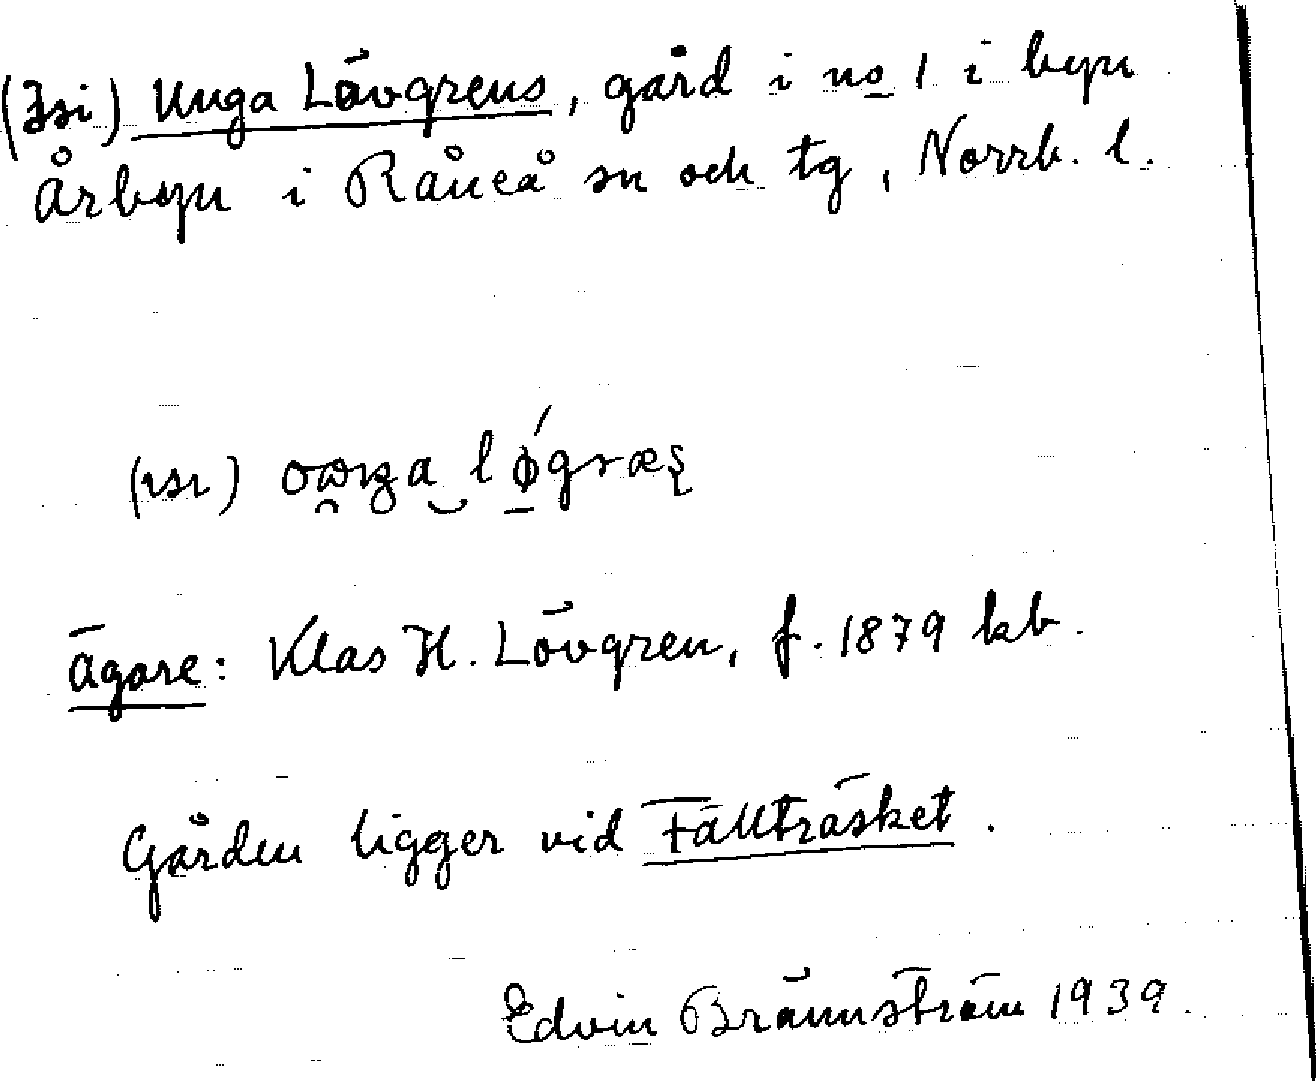 (Isi) Unga Lövgrens, gård i no 1 i byn
Årbyn i Råneå sn och tg, Norrb. l.
ägare: Klas H. Lövgren, f. 1879 kb.
Gården ligger vid Fällträsket.
Edvin Brännström 1939.